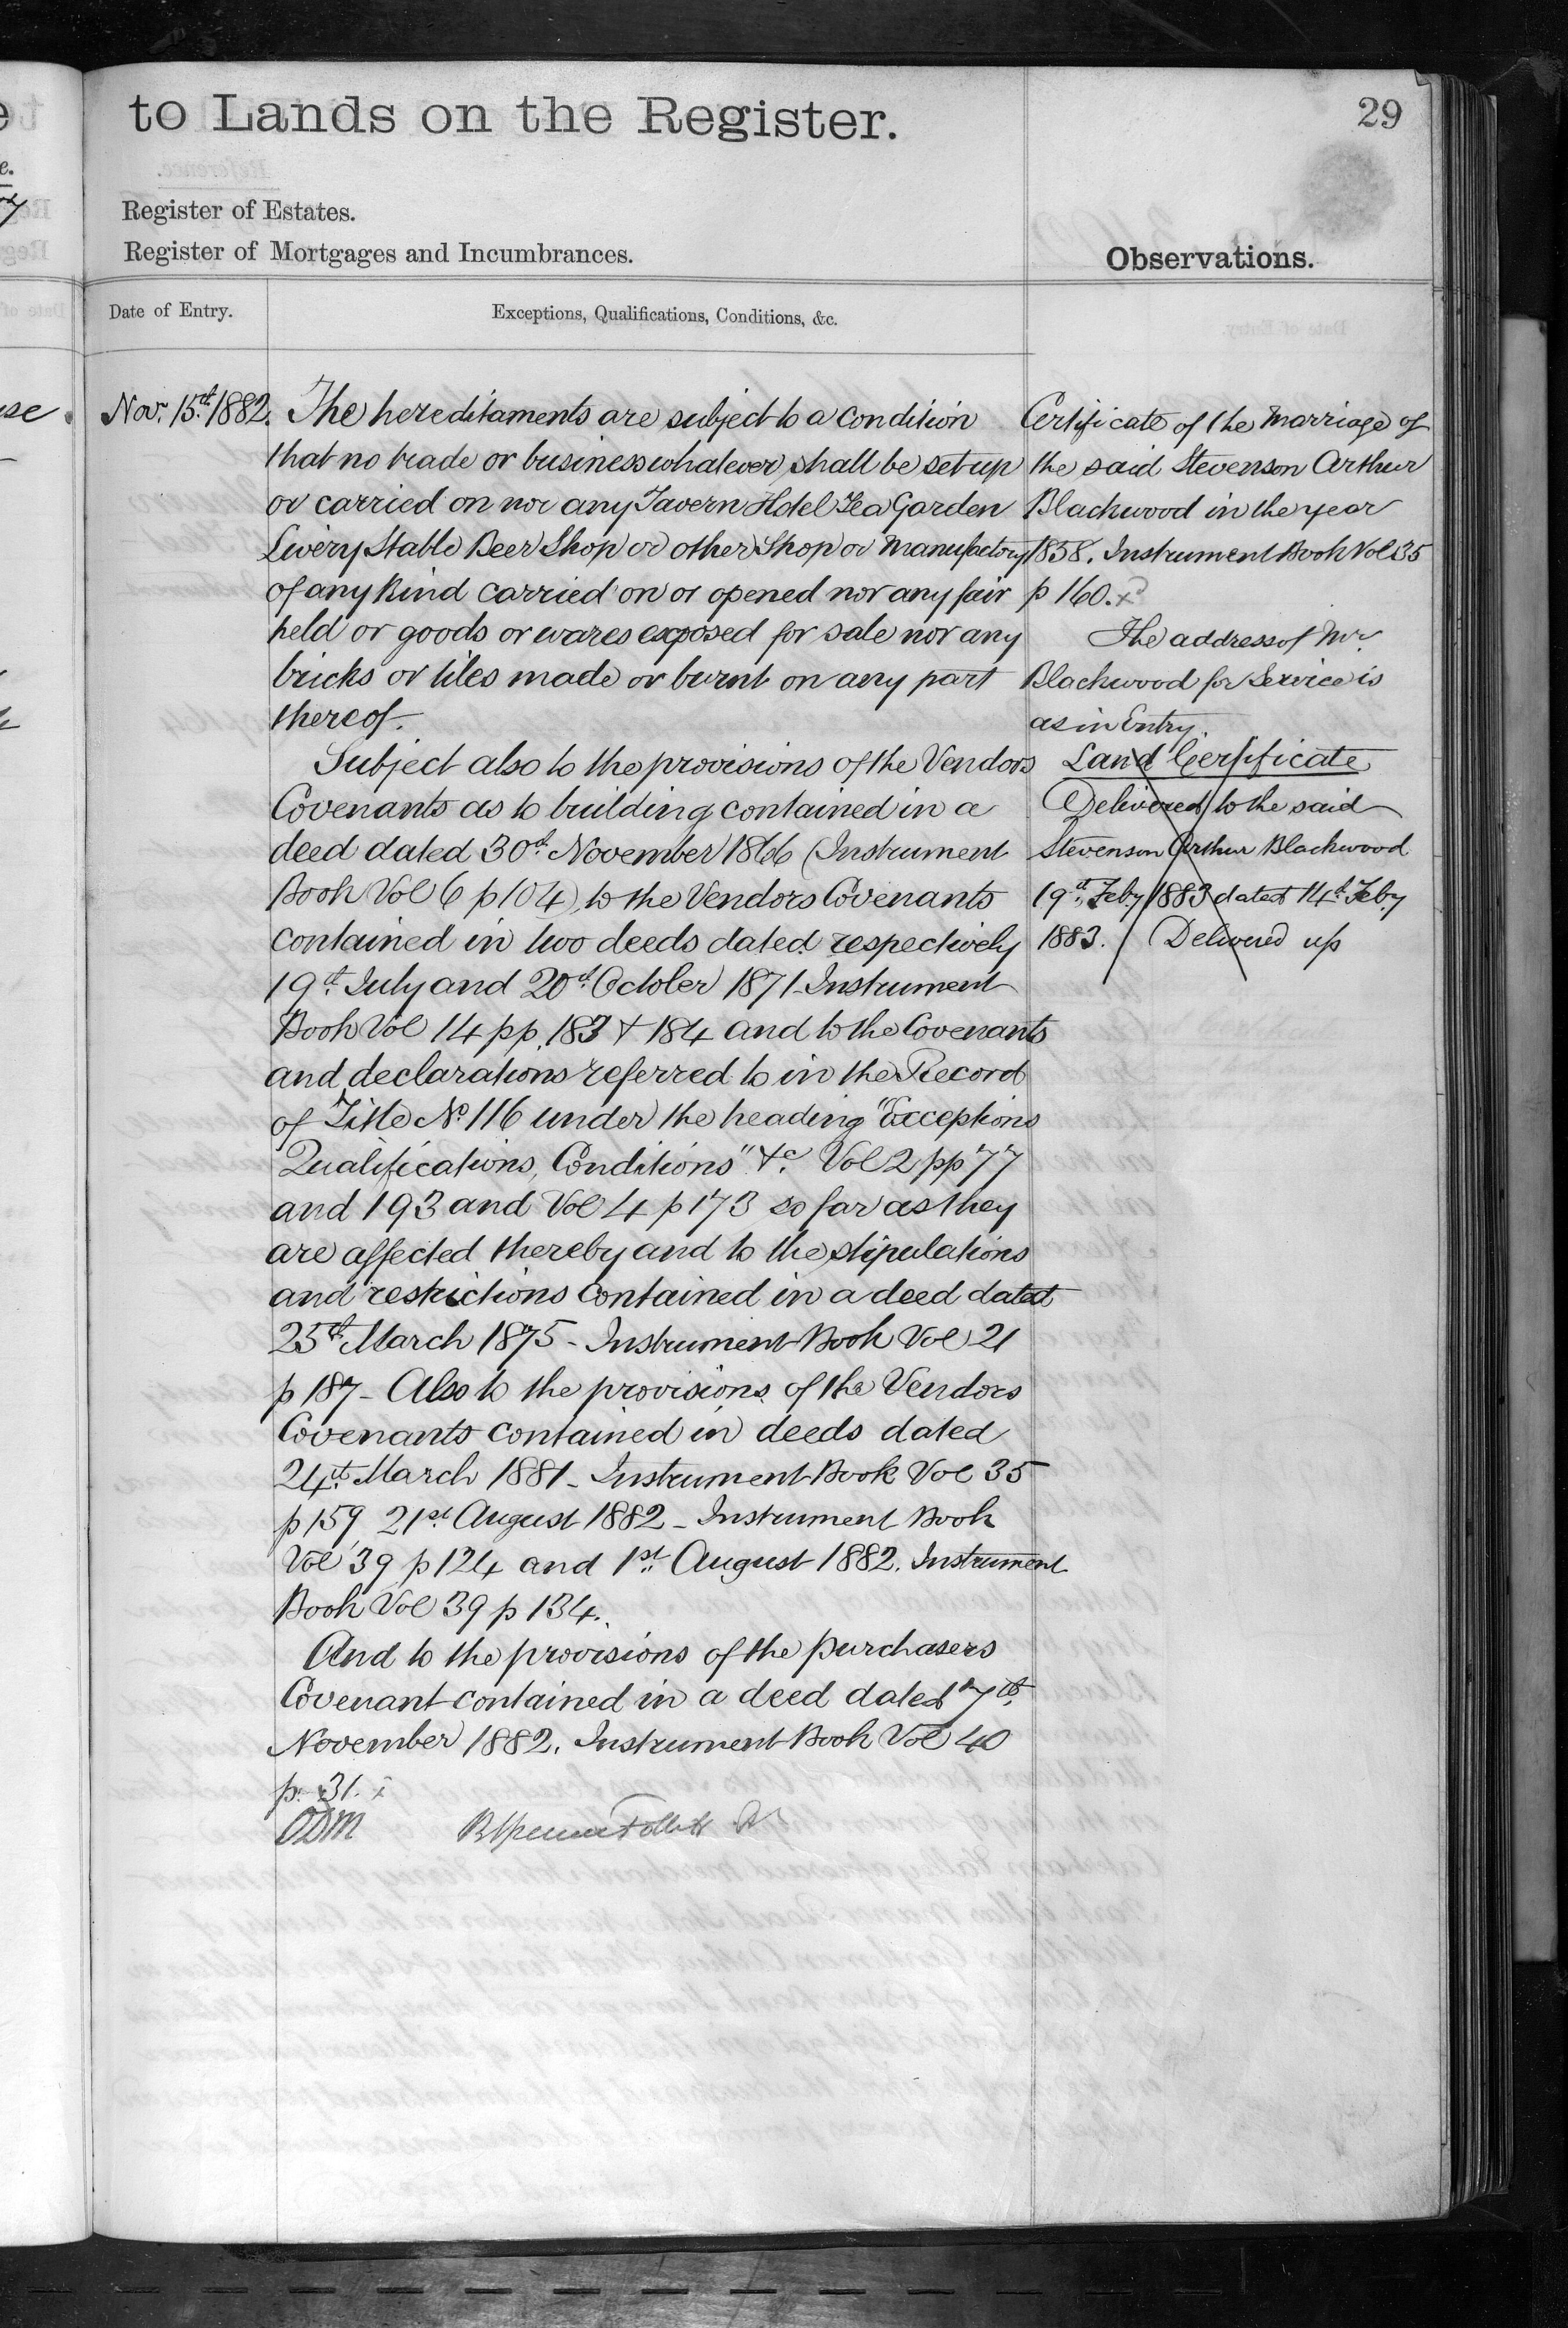 to Lands on the Register.
29
Register of Estates.
Register of Mortgages and Incumbrances.
Observations.
Date of Entry.
Exceptions, Qualifications, Conditions, &c.
Novr. 15th. 1882.
The hereditaments are subject to a condition
that no trade or business whatever shall be set up
or carried on nor any Tavern Hotel Tea Garden
Livery Stable Beer Shop or other Shop or Manufactory
of any kind carried on or opened nor any fair
held or goods or wares exposed for sale nor any
bricks or tiles made or burnt on any part
thereof.
Subject also to the provisions of the Vendors
Covenants as to building contained in a
deed dated 30th. November 1866 (Instrument
Book Vol 6 p 104) to the Vendors Covenants
contained in two deeds dated respectively
19th. July and 20th. October 1871 - Instrument
Book Vol 14 pp. 183 & 184 and to the Covenants
and declarations referred to in the Record
of Title No. 116 under the heading "Exceptions
Qualifications, Conditions" &c. Vol 2 pp 77
and 193 and Vol 4 p 173 so far as they
are affected thereby and to the stipulations
and restrictions contained in a deed dated
25th. March 1875 - Instrument Book Vol 21
p 187 - Also to the provisions of the Vendors
Covenants contained in deeds dated
24th. March 1881 - Instrument Book Vol 35
p 159 21st August 1882 - Instrument Book
Vol 39 p 124 and 1st. August 1882. Instrument
Book Vol 39 p 134.
And to the provisions of the purchasers
Covenant contained in a deed dated 7th.
November 1882. Instrument Book Vol 40
p. 31. x
ODM
Certificate of the Marriage of
the said Stevenson Arthur
Blackwood in the year
1858. Instrument Book Vol 35
p 160. x
The address of Mr.
Blackwood for Service is
as in Entry.
Land Certificate
Delivered to the said
Stevenson Arthur Blackwood
19th. Feby 1883 dated 14th. Feby
1883. Delivered up